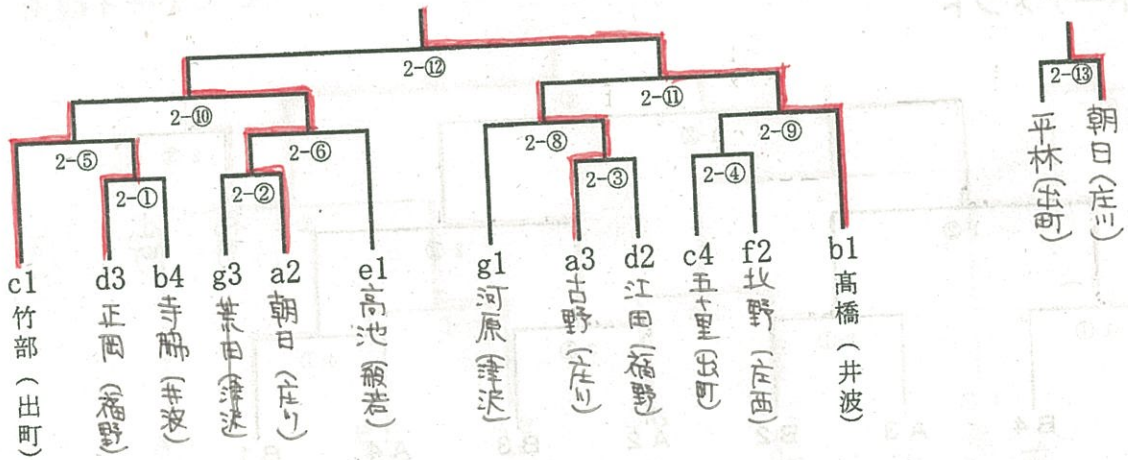 2-⑫
2-⑬
2-⑩
2-⑪
2-⑤
2-⑥
2-⑧
2-⑨
2-①
2-②
2-③
2-④
c1 竹部(出町)
d3 正岡(福野)
b4 寺脇(井波)
g3 荒田(津沢)
a2 朝日(庄川)
e1 高池(般若)
g1 河原(津沢)
a3 古野(庄川)
d2 江田(福野)
c4 五十里(出町)
f2 北野(庄西)
b1 髙橋(井波)
平林(出町)
朝日(庄川)